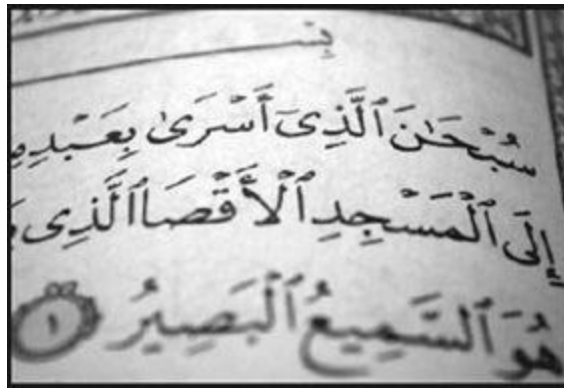 بِسْـ
سُبْحَـٰنَ ٱلَّذِىٓ أَسْرَىٰ بِعَبْدِهِۦ
إِلَى ٱلْمَسْجِدِ ٱلْأَقْصَا ٱلَّذِى
هُوَ ٱلسَّمِيعُ ٱلْبَصِيرُ ١